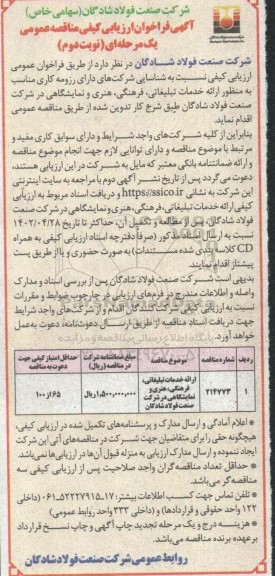 شرکت صنعت فولاد شادگان (سهامی خاص)
آگهی فراخوان ارزیابی کیفی مناقصه عمومی
یک مرحله‌ای (نوبت دوم)
شرکت صنعت فولاد شــادگان در نظر دارد از طریق فراخوان عمومی
ارزیابی کیفی نسبت به شناسایی شرکت‌های دارای رزومه کاری مناسب
به منظور ارائه خدمات تبلیغاتی، فرهنگی، هنری و نمایشگاهی در شرکت
صنعت فولاد شادگان طبق شرح کار تدوین شده از طریق مناقصه عمومی
اقدام نماید.
بنابراین از کلیه شــرکت‌های واجد شــرایط و دارای سوابق کاری مفید و
مرتبط با موضوع مناقصه و دارای توانایی لازم جهت انجام موضوع مناقصه
و ارائه ضمانتنامه بانکی معتبر که مایل به شرکت در این ارزیابی هستند،
دعوت می گردد پس از تاریخ نشــر آگهی دوم با مراجعه به سایت اینترنتی
این شرکت به نشانی https://ssico.ir و دریافت اسناد مربوط به ارزیابی
کیفی ارائه خدمات تبلیغاتی، فرهنگی، هنری و نمایشگاهی در شرکت صنعت
فولاد شادگان، پس از مطالعه و تکمیل آن، حداکثر تا تاریخ ۱۴۰۲/۰۴/۲۸
نسبت به ارسال اسناد مذکور (صرفاً دفترچه اسناد ارزیابی کیفی به همراه
CD کلاسه بندی شده مســتندات) به صورت حضوری و یا از طریق پست
پیشتاز اقدام نمایند.
بدیهی است شرکت صنعت فولاد شادگان پس از بررسی اسناد و مدارک
واصله و اطلاعات مندرج در فرم‌های ارزیابی در چارچوب ضوابط و مقررات
نسبت به ارزیابی کیفی شرکت کنندگان اقدام و از شرکت‌های واجد شرایط
جهت دریافت اسناد مناقصه از طریق ارســال دعوتنامه، دعوت به عمل
خواهد آورد.
ردیف شماره مناقصه موضوع مناقصه مبلغ ضمانتنامه شرکت در مناقصه (ریال) حداقل امتیاز کیفی جهت دعوت به مناقصه
۱ ۲۱۴۷۷۳ ارائه خدمات تبلیغاتی، فرهنگی، هنری و نمایشگاهی در شرکت صنعت فولاد شادگان ۱،۵۰۰،۰۰۰،۰۰۰ ریال ۶۵ از ۱۰۰
* اعلام آمادگی و ارسال مدارک و پرسشنامه‌های تکمیل شده در ارزیابی کیفی،
هیچگونه حقی را برای متقاضیان جهت شــرکت در مناقصه‌های آتی این شرکت
ایجاد ننموده و ارسال مدارک ارزیابی به منزله قبول آن‌ها در ارزیابی‌ها نمی‌باشد.
* حداقل تعداد مناقصه گران واجد صلاحیت پس از ارزیابی کیفی سه
مناقصه گر می‌باشد.
* تلفن تماس جهت کسب اطلاعات بیشتر: ۱۷-۵۲۲۲۷۹۱۵-۰۶۱ (داخلی
۱۲۲ واحد حقوقی و قراردادها) و (داخلی ۳۳۳ واحد روابط عمومی)
* هزینــه درج و یک مرحله تجدید چاپ آگهی و چاپ نسخ قرارداد
بر عهده برنده مناقصه می‌باشد.
روابط عمومی شرکت صنعت فولاد شادگان